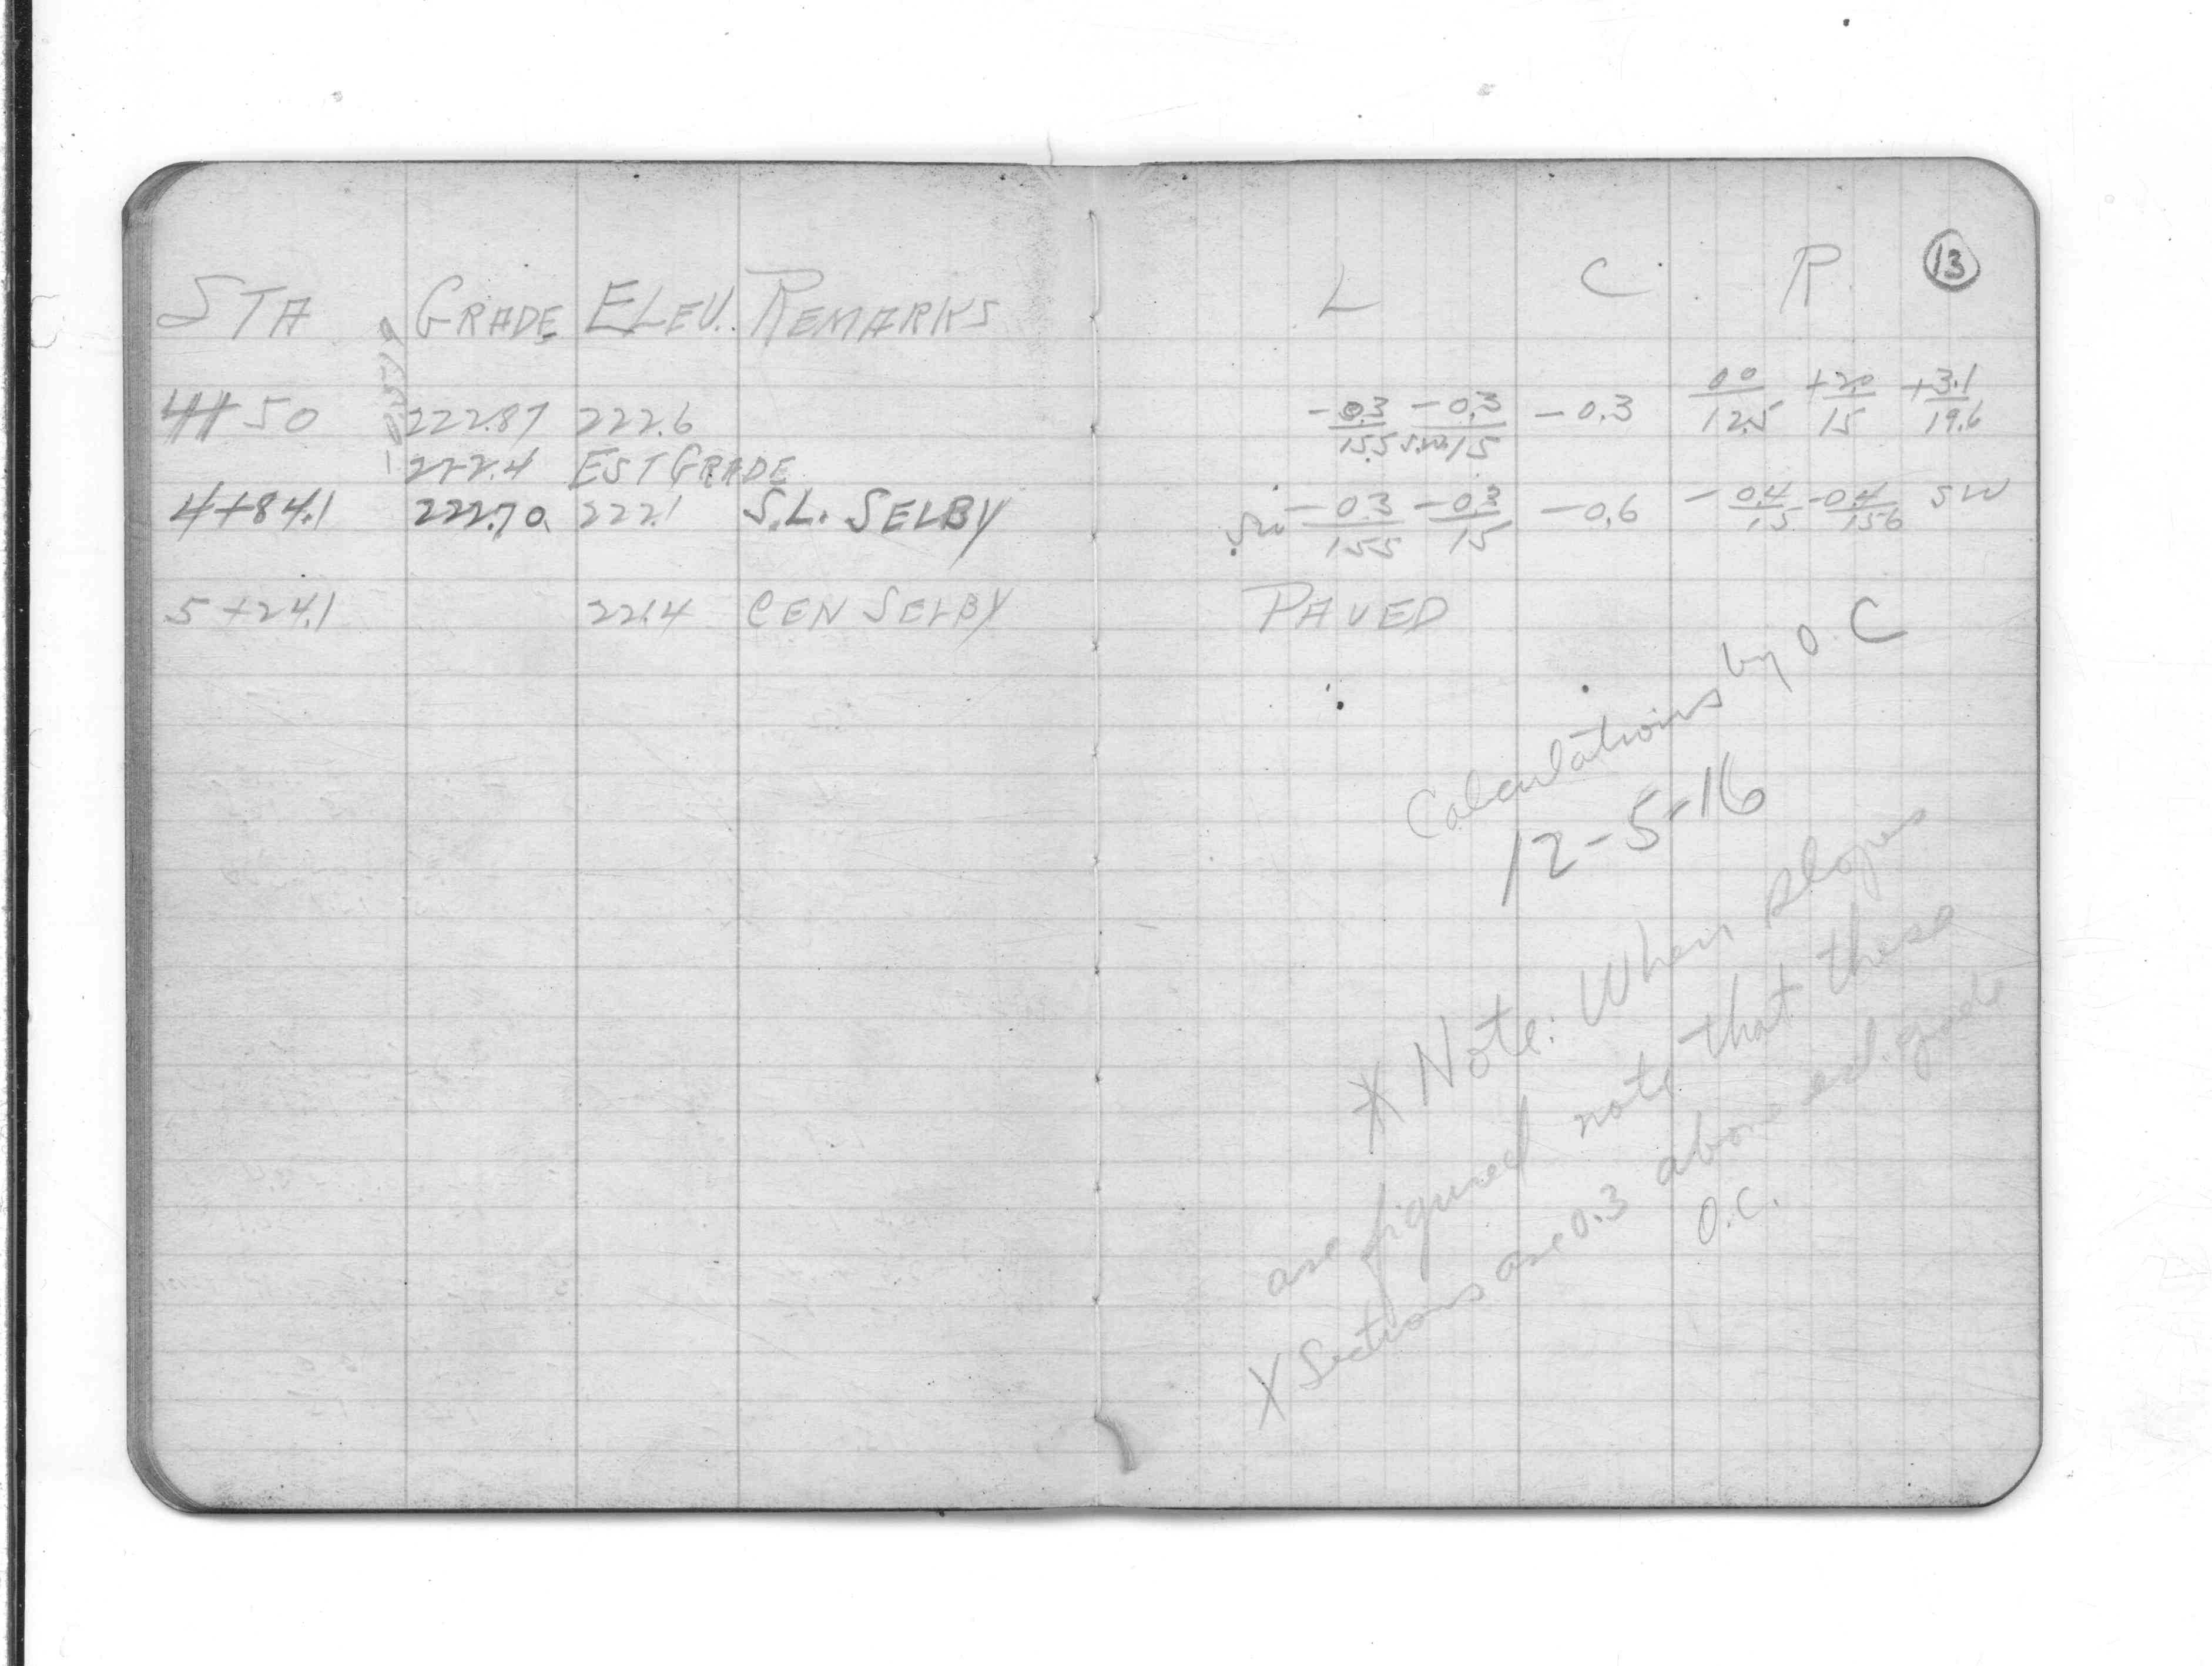 STA GRADE ELEV. REMARKS
4+50 222.87 222.6
222.4 EST GRADE
4+84.1 222.70 222.1 S.L. SELBY
5+24.1 221.4 CEN SELBY
13
L C R
-0.3/15.5 S.W. -0.3/15 -0.3 0.0/12.5 +2.0/15 +3.1/19.6
SW -0.3/15.5 -0.3/15 -0.6 -0.4/15 -0.4/15.6 SW
PAVED
Calculations by O.C
12-5-16
* Note: When slopes
are figured note that these
X Sections are 0.3 above est. grade
O.C.